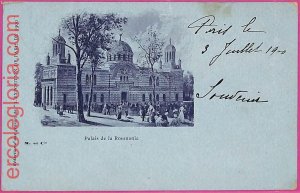 ercolegloria.com
Paris le
3 Juillet 190
Souvenir
Palais de la Roumanie
M. et Cie